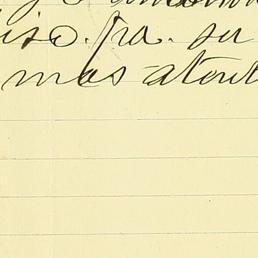 iso. pa. su
mas atent